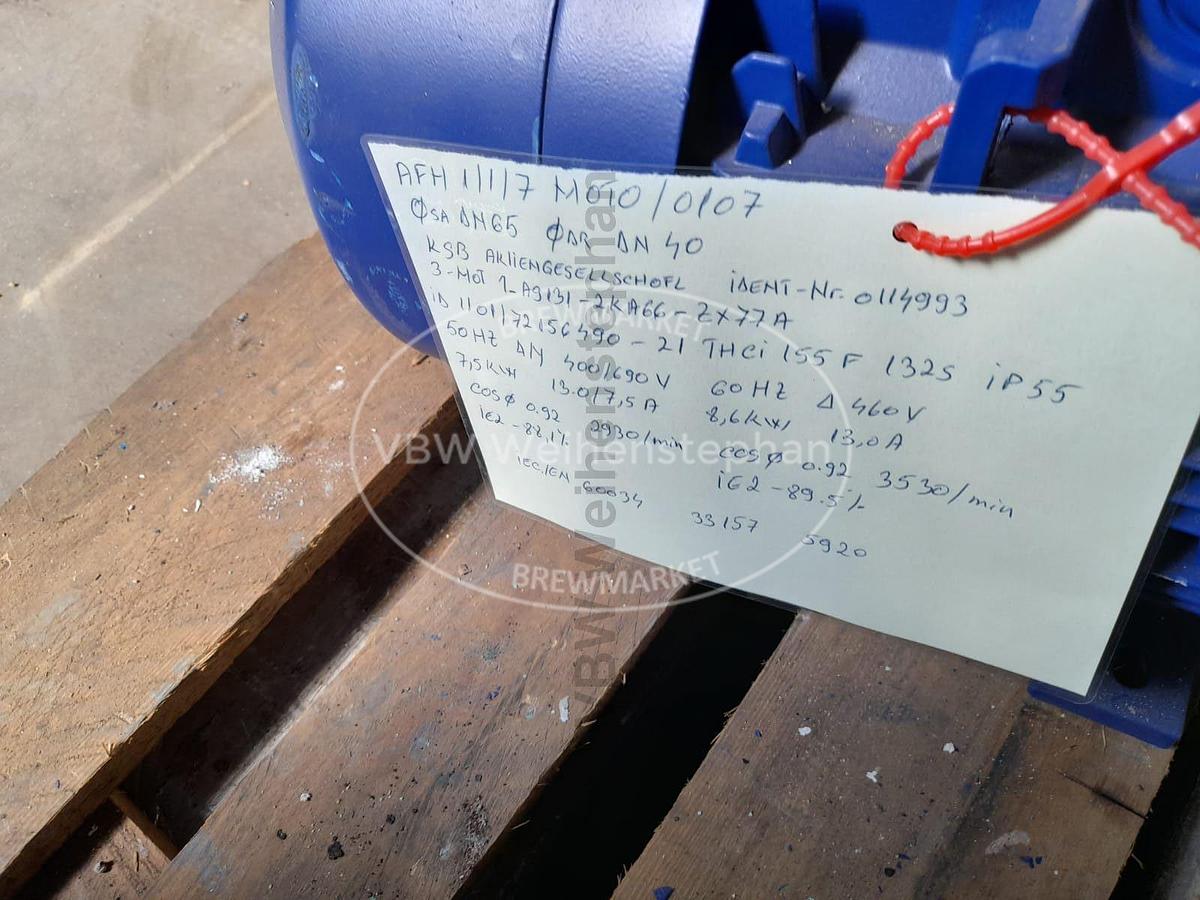 AFH 1/1/7 MOTO/0/07
ØSA DN65 ØDR DN 40
KSB AKTIENGESELLSCHOFL iDENT-Nr. 0114993
3-MOT 1-A9131-2KA66-ZX77A
ID 1101172156490-21 THCi 155 F 132S iP55
50 HZ ΔN 400/690 V 60 HZ Δ 460V
7,5KW 13.0/7,5A 8,6KW, 13,0A
COSØ 0.92 2930/min COSØ 0.92 3530/min
iE2-88,1% iE2-89.5%
IEC/EN 60034 33157 5920
BREWMARKET
VBW Weihenstephan
BREWMARKET
VBW Weihenstephan